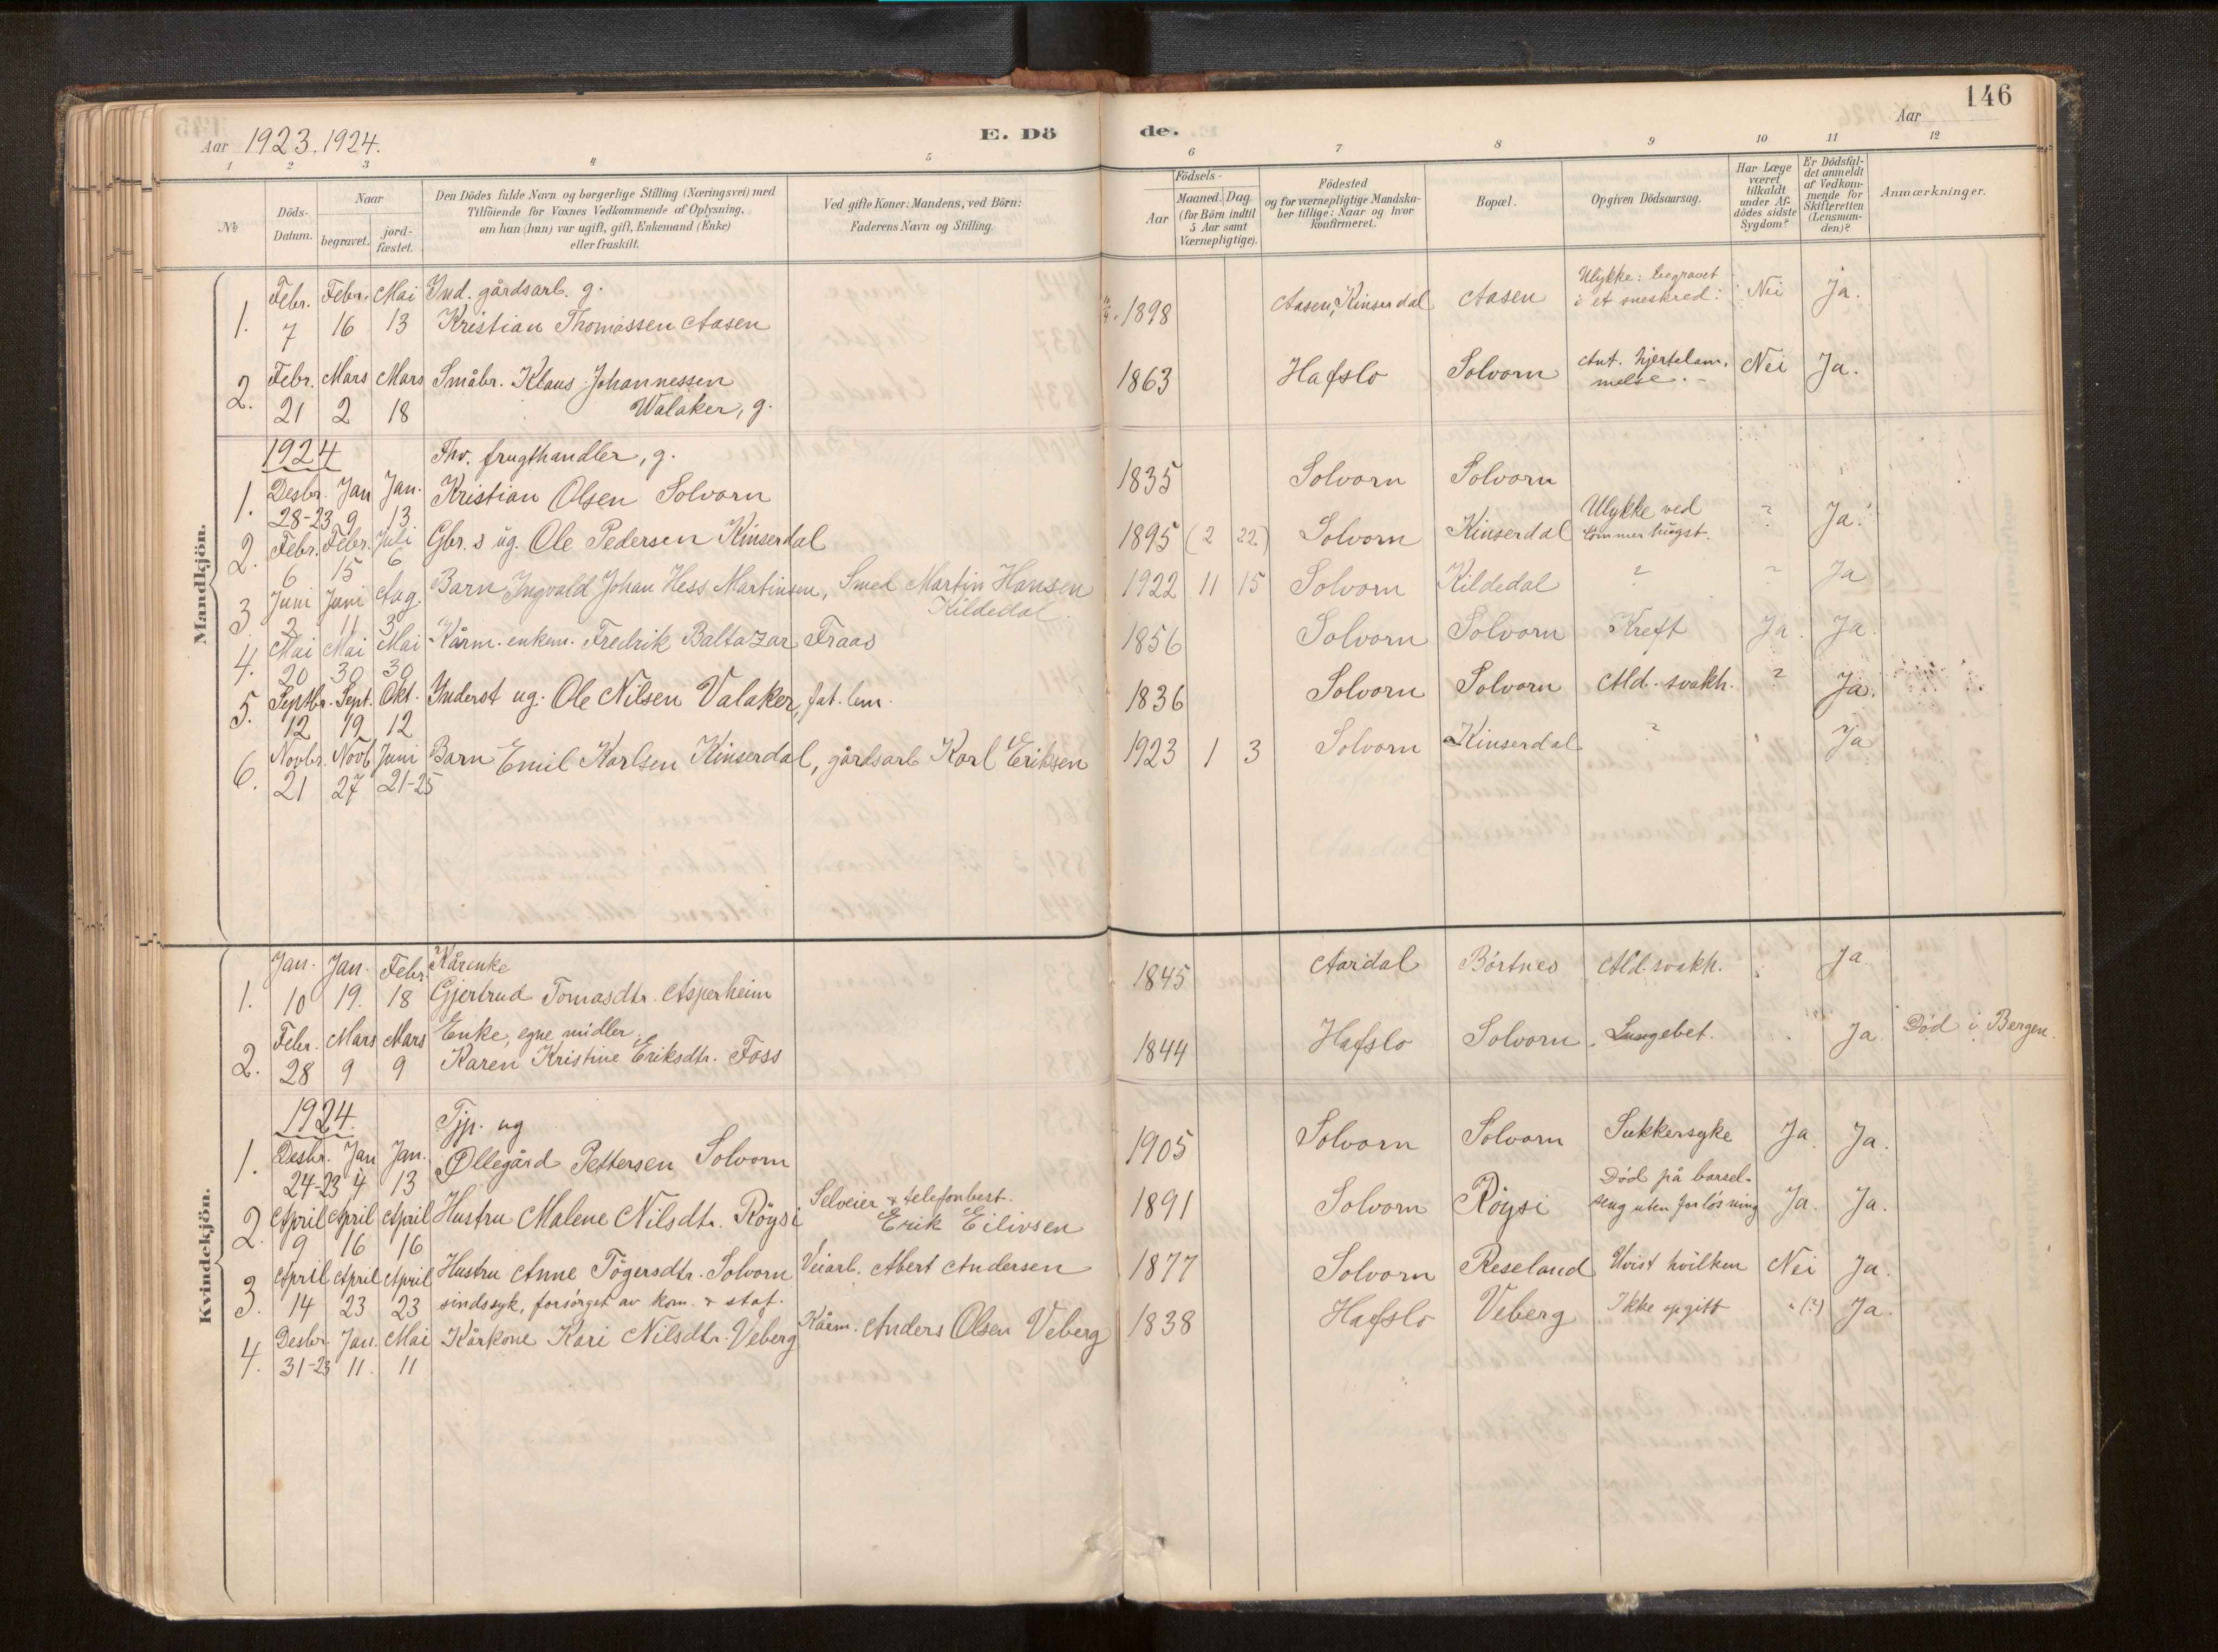 146
Aar 1923. 1924.
E. Dö
de.
Aar
1 2 3 4 5 6 7 8 9 10 11 12
№
Döds-
Datum.
Naar
begravet.
jord-
fæstet.
Den Dödes fulde Navn og borgerlige Stilling (Næringsvei) med
Tilföiende for Voxnes Vedkommende af Oplysning,
om han (hun) var ugift, gift, Enkemand (Enke)
eller fraskilt.
Ved gifte Koner: Mandens, ved Börn:
Faderens Navn og Stilling.
Födsels-
Aar
Maaned. Dag.
(for Börn indtil
5 Aar samt
Værnepligtige).
Födested
og for værnepligtige Mandska-
ber tillige: Naar og hvor
konfirmeret.
Bopæl.
Opgiven Dödsaarsag.
Har Læge
været
tilkaldt
under Af-
dödes sidste
Sygdom?
Er Dödsfal-
det anmeldt
af Vedkom-
mende for
Skifteretten
(Lensman-
den)?
Anmærkninger.
Mandkjön.
Febr. Febr. Mai Ind. gårdsarb. g.
1. 7 16 13 Kristian Thomassen Aasen
1898 Aasen, Kinserdal Aasen Ulykke: begravet
i et sneskred. Nei Ja.
2. Febr. Mars Mars Småbr. Klaus Johannessen
21 2 18 Walaker, g.
1863 Hafslo Solvorn Ant. hjertelam.
melse. - Nei Ja.
1924 Fhv. frugthandler, g.
1. Desbr. Jan Jan. Kristian Olsen Solvorn
28-23 9 13
1835 Solvorn Solvorn
2. Febr. Febr. Juli Gbr. s ug. Ole Pedersen Kinserdal
6 15 6
1895 (2 22) Solvorn Kinserdal Ulykke ved
tömmerhugst. ? Ja.
3 Juni Juni Aug. Barn Ingvald Johan Hess Martinsen, Smed Martin Hansen
2 11 3 Kildedal.
1922 11 15 Solvorn Kildedal ? ? Ja
4. Mai Mai Mai Kårm. enkem. Fredrik Baltazar Fraas
20 30 30
1856 Solvorn Solvorn Kreft Ja. Ja.
5. Septbr. Sept. Okt. Inderst ug. Ole Nilsen Valaker, fat. lem.
12 19 12
1836 Solvorn Solvorn Ald. svakh. ? Ja.
6. Novbr. Novb Juni Barn Emil Karlsen Kinserdal, gårdsarb Karl Eriksen
21 27 21-25
1923 1 3 Solvorn Kinserdal ? Ja
Kvindekjön.
Jan. Jan. Febr. Kårenke
1. 10 19. 18 Gjertrud Tomasdtr. Asperheim
1845 Aardal Börtnes Ald. svakh. Ja.
Febr. Mars Mars Enke, egne midler
2. 28 9 9 Karen Kristine Eriksdtr. Foss
1844 Hafslo Solvorn Lungebet. Ja Död i Bergen.
1924. Tjp. ug
1. Desbr. Jan Jan. Øllegård Pettersen Solvorn
24-23 4 13
1905 Solvorn Solvorn Sukkersyke Ja. Ja.
2. April April April Hustru Malene Nilsdtr. Röysi Selveier & telefonbest.
9 16 16 Erik Eilivsen
1891 Solvorn Röysi Död på barsel-
seng uten forlösning Ja. Ja.
3. April April April Hustru Anne Tögersdtr. Solvorn Veiarb. Abert Andersen
14 23 23 sindssyk, forsörget av kom. & stat.
1877 Solvorn Reseland Uvist hvilken Nei Ja.
4. Desbr. Jan. Mai Kårkone Kari Nilsdtr. Veberg Kårm. Anders Olsen Veberg
31-23 11. 11
1838 Hafslo Veberg Ikke opgitt " (?) Ja.